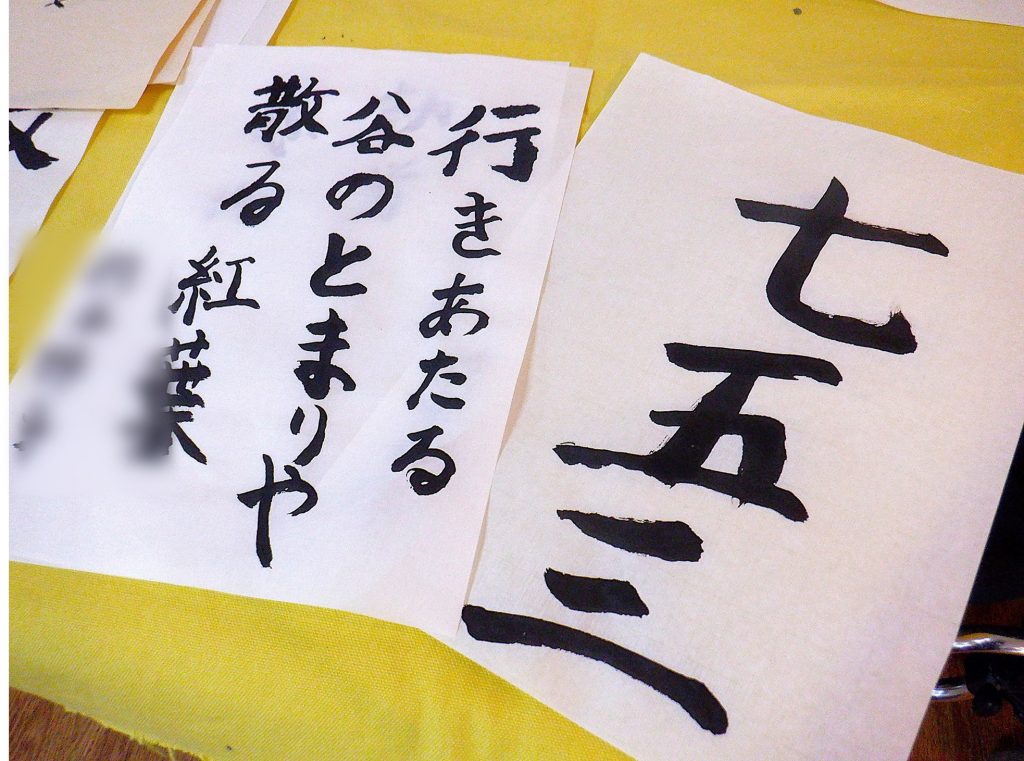 七五三
行きあたる
谷のとまりや
散る紅葉